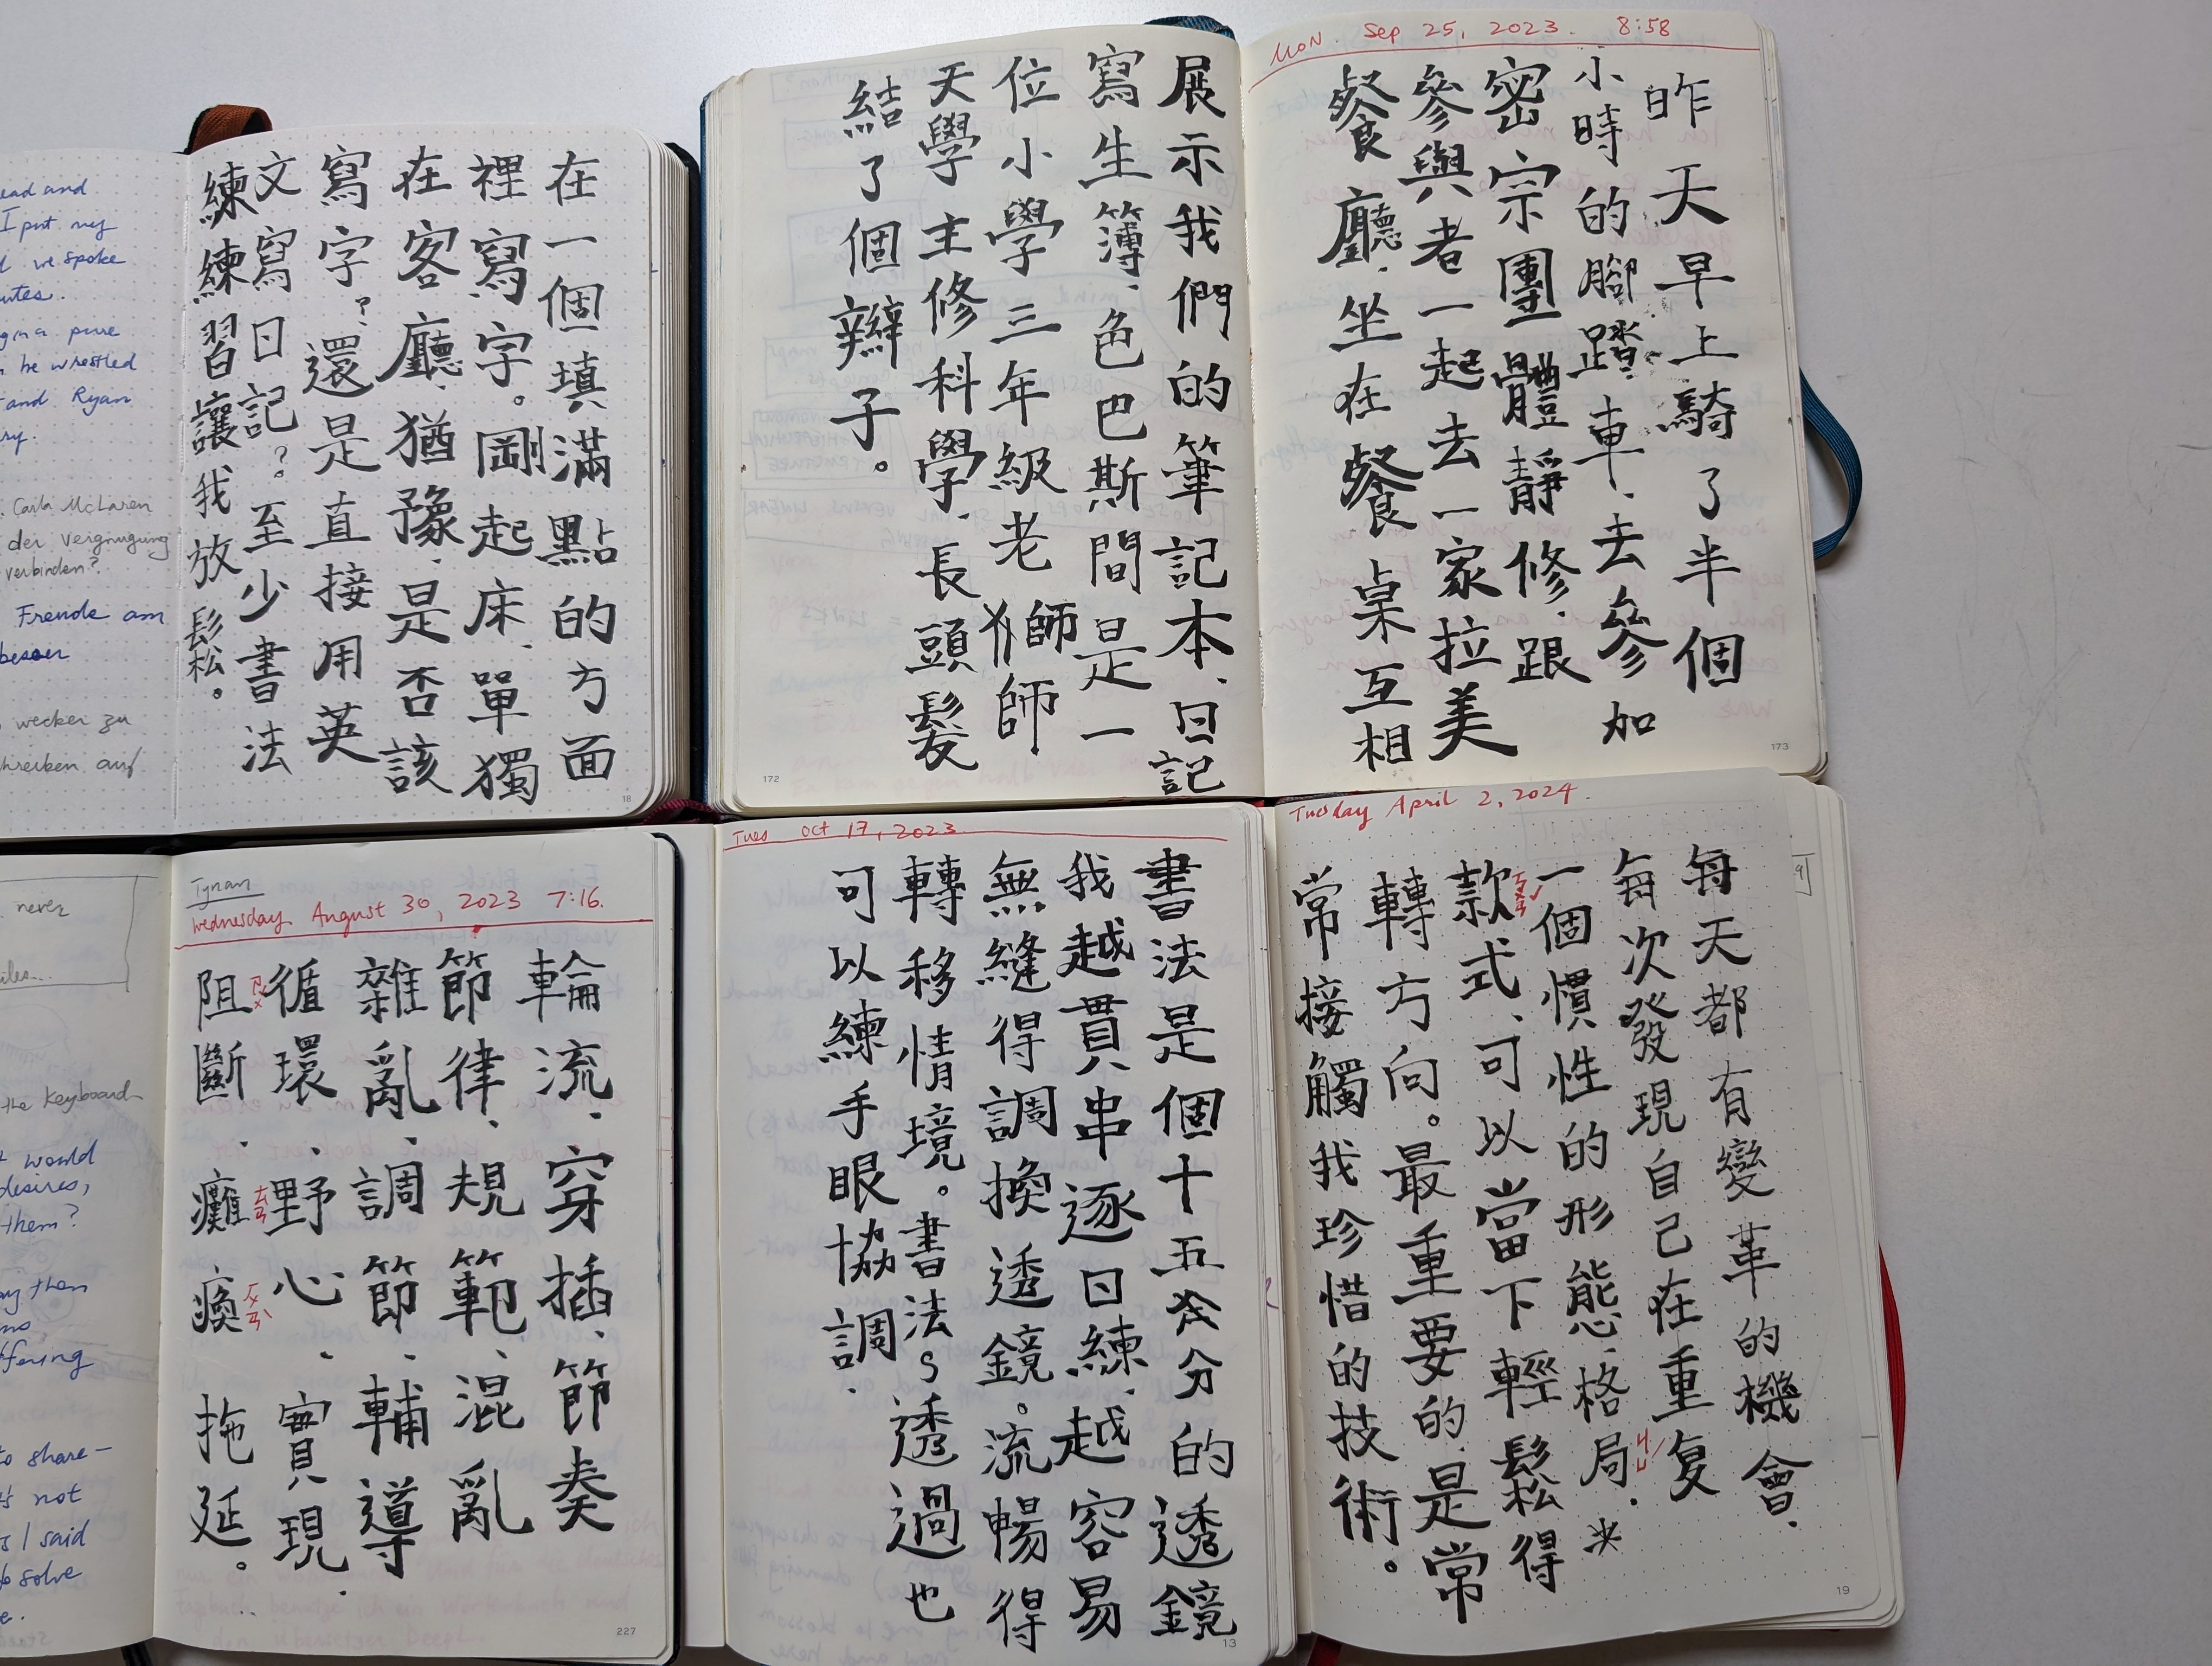 ead and
I put my
we spoke
utes.
he wrestled
and Ryan
ry.
Carla McLaren
der Vergnügung
verbinden?
Freude am
besser
wecker zu
schreiben auf
在一個填滿點的方面
裡寫字。剛起床、單獨
在客廳、猶豫、是否該
寫字?還是直接用英
文寫日記?。至少書法
練練習讓我放鬆。
18
MON. Sep 25, 2023. 8:58
昨天早上騎了半個
小時的腳踏車、去參加
密宗團體靜修、跟
參與者一起去一家拉美
餐廳、坐在餐桌互相
173
展示我們的筆記本、日記
寫生簿、色巴斯間是一
位小學三年級老師師
天學主修科學、長頭髮
結了個辮子。
172
never
iles...
the keyboard
would
desires,
them?
them
ffering
to share-
not
I said
solve
Tynan
Wednesday August 30, 2023 7:16.
輪流、穿插、節奏
節律、規範、混亂
雜亂、調節、輔導
循環、野心、實現、
阻ㄗㄨˇ斷、癱ㄊㄢ瘓ㄏㄨㄢˋ、拖延。
227
Tues Oct 17, 2023
書法是個十五分的透鏡
我越貫串逐日練、越容易
無縫得調換透鏡。流暢得
轉移情境。書法透過也
可以練手眼協調、
13
Tuesday April 2, 2024.
每天都有變革的機會、
每次發現自己在重复
一個慣性的形態、格局ㄐㄩˊ、*
款ㄎㄨㄢˇ式、可以當下輕鬆得
轉方向。最重要的、是常
常接觸我珍惜的技術。
19